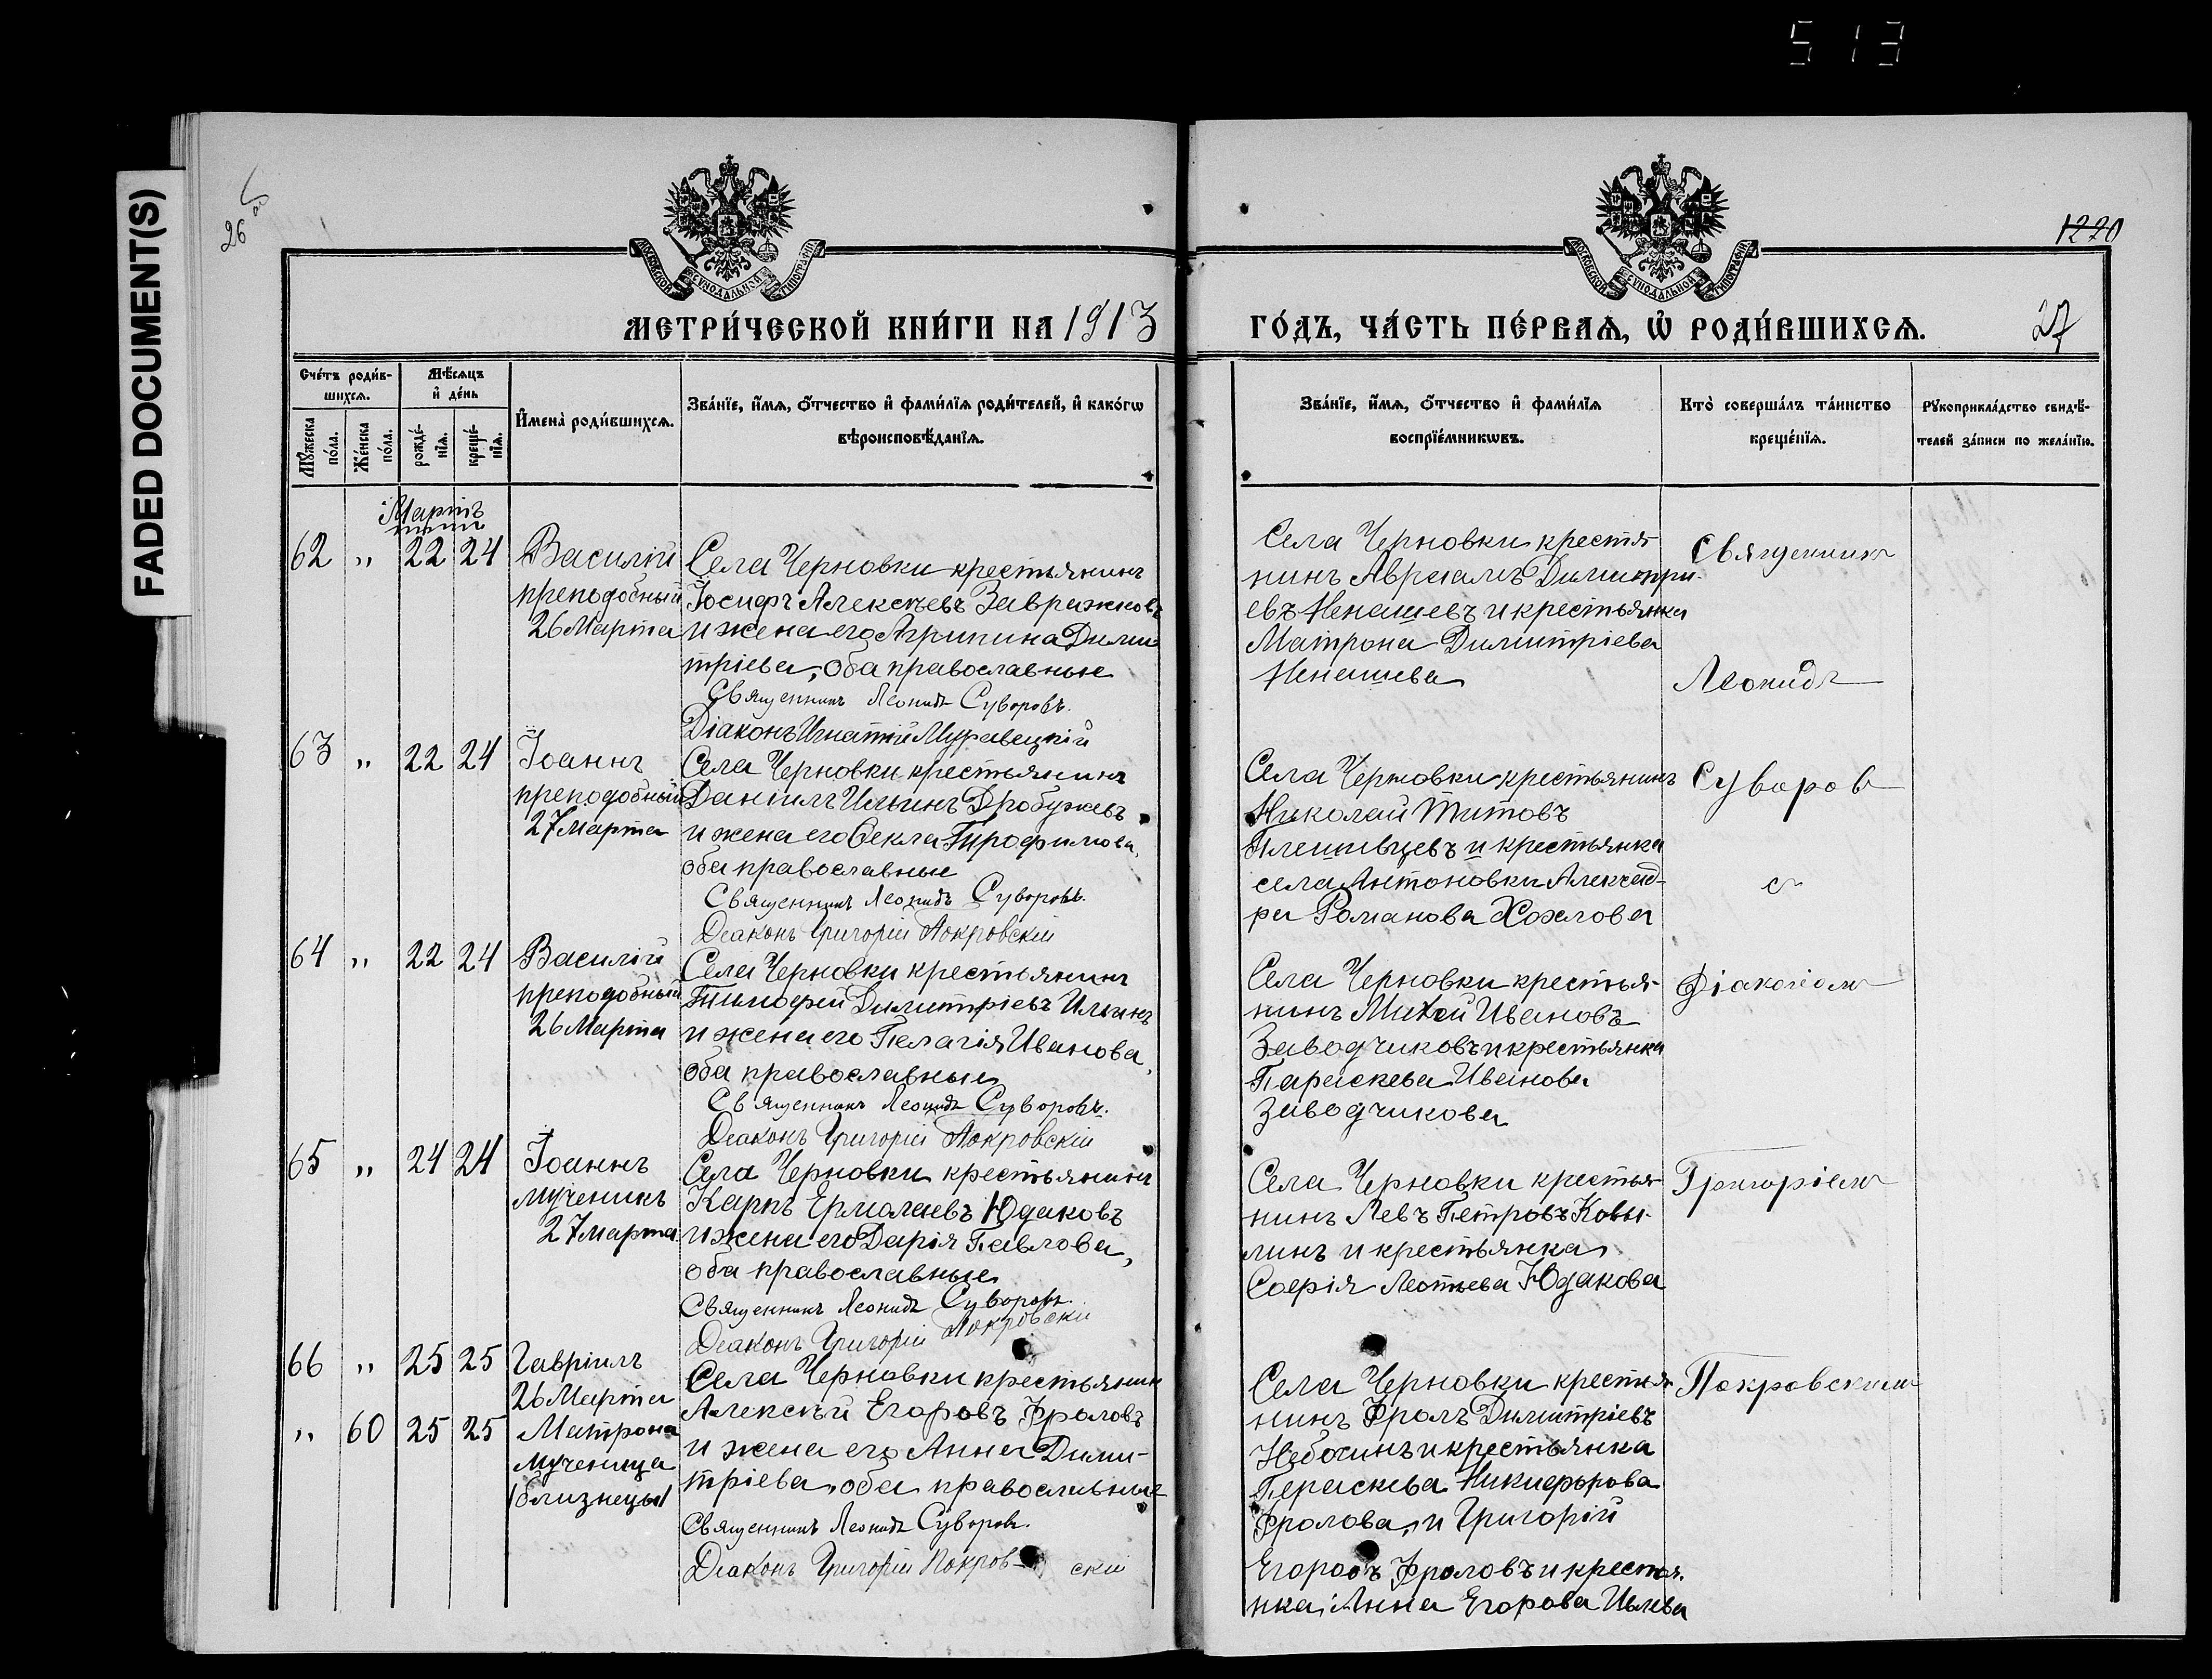 513
FADED DOCUMENT(S)
26 об
1220
27
МОСКОВСКОЙ СУНОДАЛЬНОЙ ТИПОГРАФІИ
МОСКОВСКОЙ СУНОДАЛЬНОЙ ТИПОГРАФІИ
МЕТРИ́ЧЕСКОЙ КНИ́ГИ НА 1913
ГО́ДЪ, ЧА́СТЬ ПЕ́РВАѦ, Ѡ҆ РОДИ́ВШИХСѦ.
Сче́тъ роди́в-
шихсѧ.
Мѣ́сѧцъ
и҆ де́нь
Мꙋ́жеска
по́ла.
Же́нска
по́ла.
рожде́-
нїѧ.
креще́-
нїѧ.
И҆мена̀ роди́вшихсѧ.
Зва́нїе, и҆́мѧ, ѻ҆́тчество и҆ фами́лїѧ роди́телей, и҆ како́гѡ
вѣроисповѣ́данїѧ.
Зва́нїе, и҆́мѧ, ѻ҆́тчество и҆ фами́лїѧ
воспрїе́мникѡвъ.
Кто̀ соверша́лъ та́инство
креще́нїѧ.
Рꙋкоприкла́дство свидѣ́-
телей за́писи по жела́нїю.
Мартъ
62 " 22 24
Василій
преподобный
26 Марта
Села Черновки крестьянинъ
Іосифъ Алексѣевъ Завражновъ
и жена его Агрипина Дими
тріева, оба православные
Священникъ Леонидъ Суворовъ.
Діаконъ Игнатій Муравецкій
Села Черновки крестья
нинъ Авраамъ Димитри-
евъ Ненашевъ и крестьянка
Матрона Димитріева
Ненашева
Священникъ
Леонидъ
63 " 22 24
Іоаннъ
преподобный
27 Марта
Села Черновки крестьянинъ
Даніилъ Ильинъ Дробужевъ
и жена его Ѳекла Трофимова,
оба православные
Священникъ Леонидъ Суворовъ.
Діаконъ Григорій Покровскій
Села Черновки крестьянинъ
Николай Титовъ
Плешивцевъ и крестьянка
села Антоновки Александ-
ра Романова Хохлова
Суворов
с
64 " 22 24
Василій
преподобный
26 Марта
Села Черновки крестьянинъ
Тимофей Димитріевъ Ильинъ
и жена его Пелагія Иванова,
оба православные
Священникъ Леонидъ Суворовъ.
Діаконъ Григорій Покровскій
Села Черновки крестья-
нинъ Михей Ивановъ
Заводчиковъ и крестьянка
Параскева Иванова
Заводчикова
Діакономъ
65 " 24 24
Іоаннъ
мученикъ
27 марта
Села Черновки крестьянинъ
Карпъ Ермолаевъ Юдаковъ
и жена его Дарія Павлова,
оба православные
Священникъ Леонидъ Суворовъ.
Діаконъ Григорій Покровскій
Села Черновки крестья-
нинъ Левъ Петровъ Ковы-
линъ и крестьянка
Софія Леотьева Юдакова
Григоріемъ
66 " 25 25
Гавріилъ
26 Марта
" 60 25 25
Матрона
мученица
/близнецы/
Села Черновки крестьянинъ
Алексѣй Егоровъ Фроловъ
и жена его Анна Дими-
тріева, оба православные
Священникъ Леонидъ Суворовъ.
Діаконъ Григорій Покров- скій
Села Черновки крестья-
нинъ Фролъ Димитріевъ
Небогинъ и крестьянка
Параскева Никифорова
Фролова, и Григорій
Егоровъ Фроловъ и крестья-
нка, Анна Егорова Ивлева
Покровскимъ